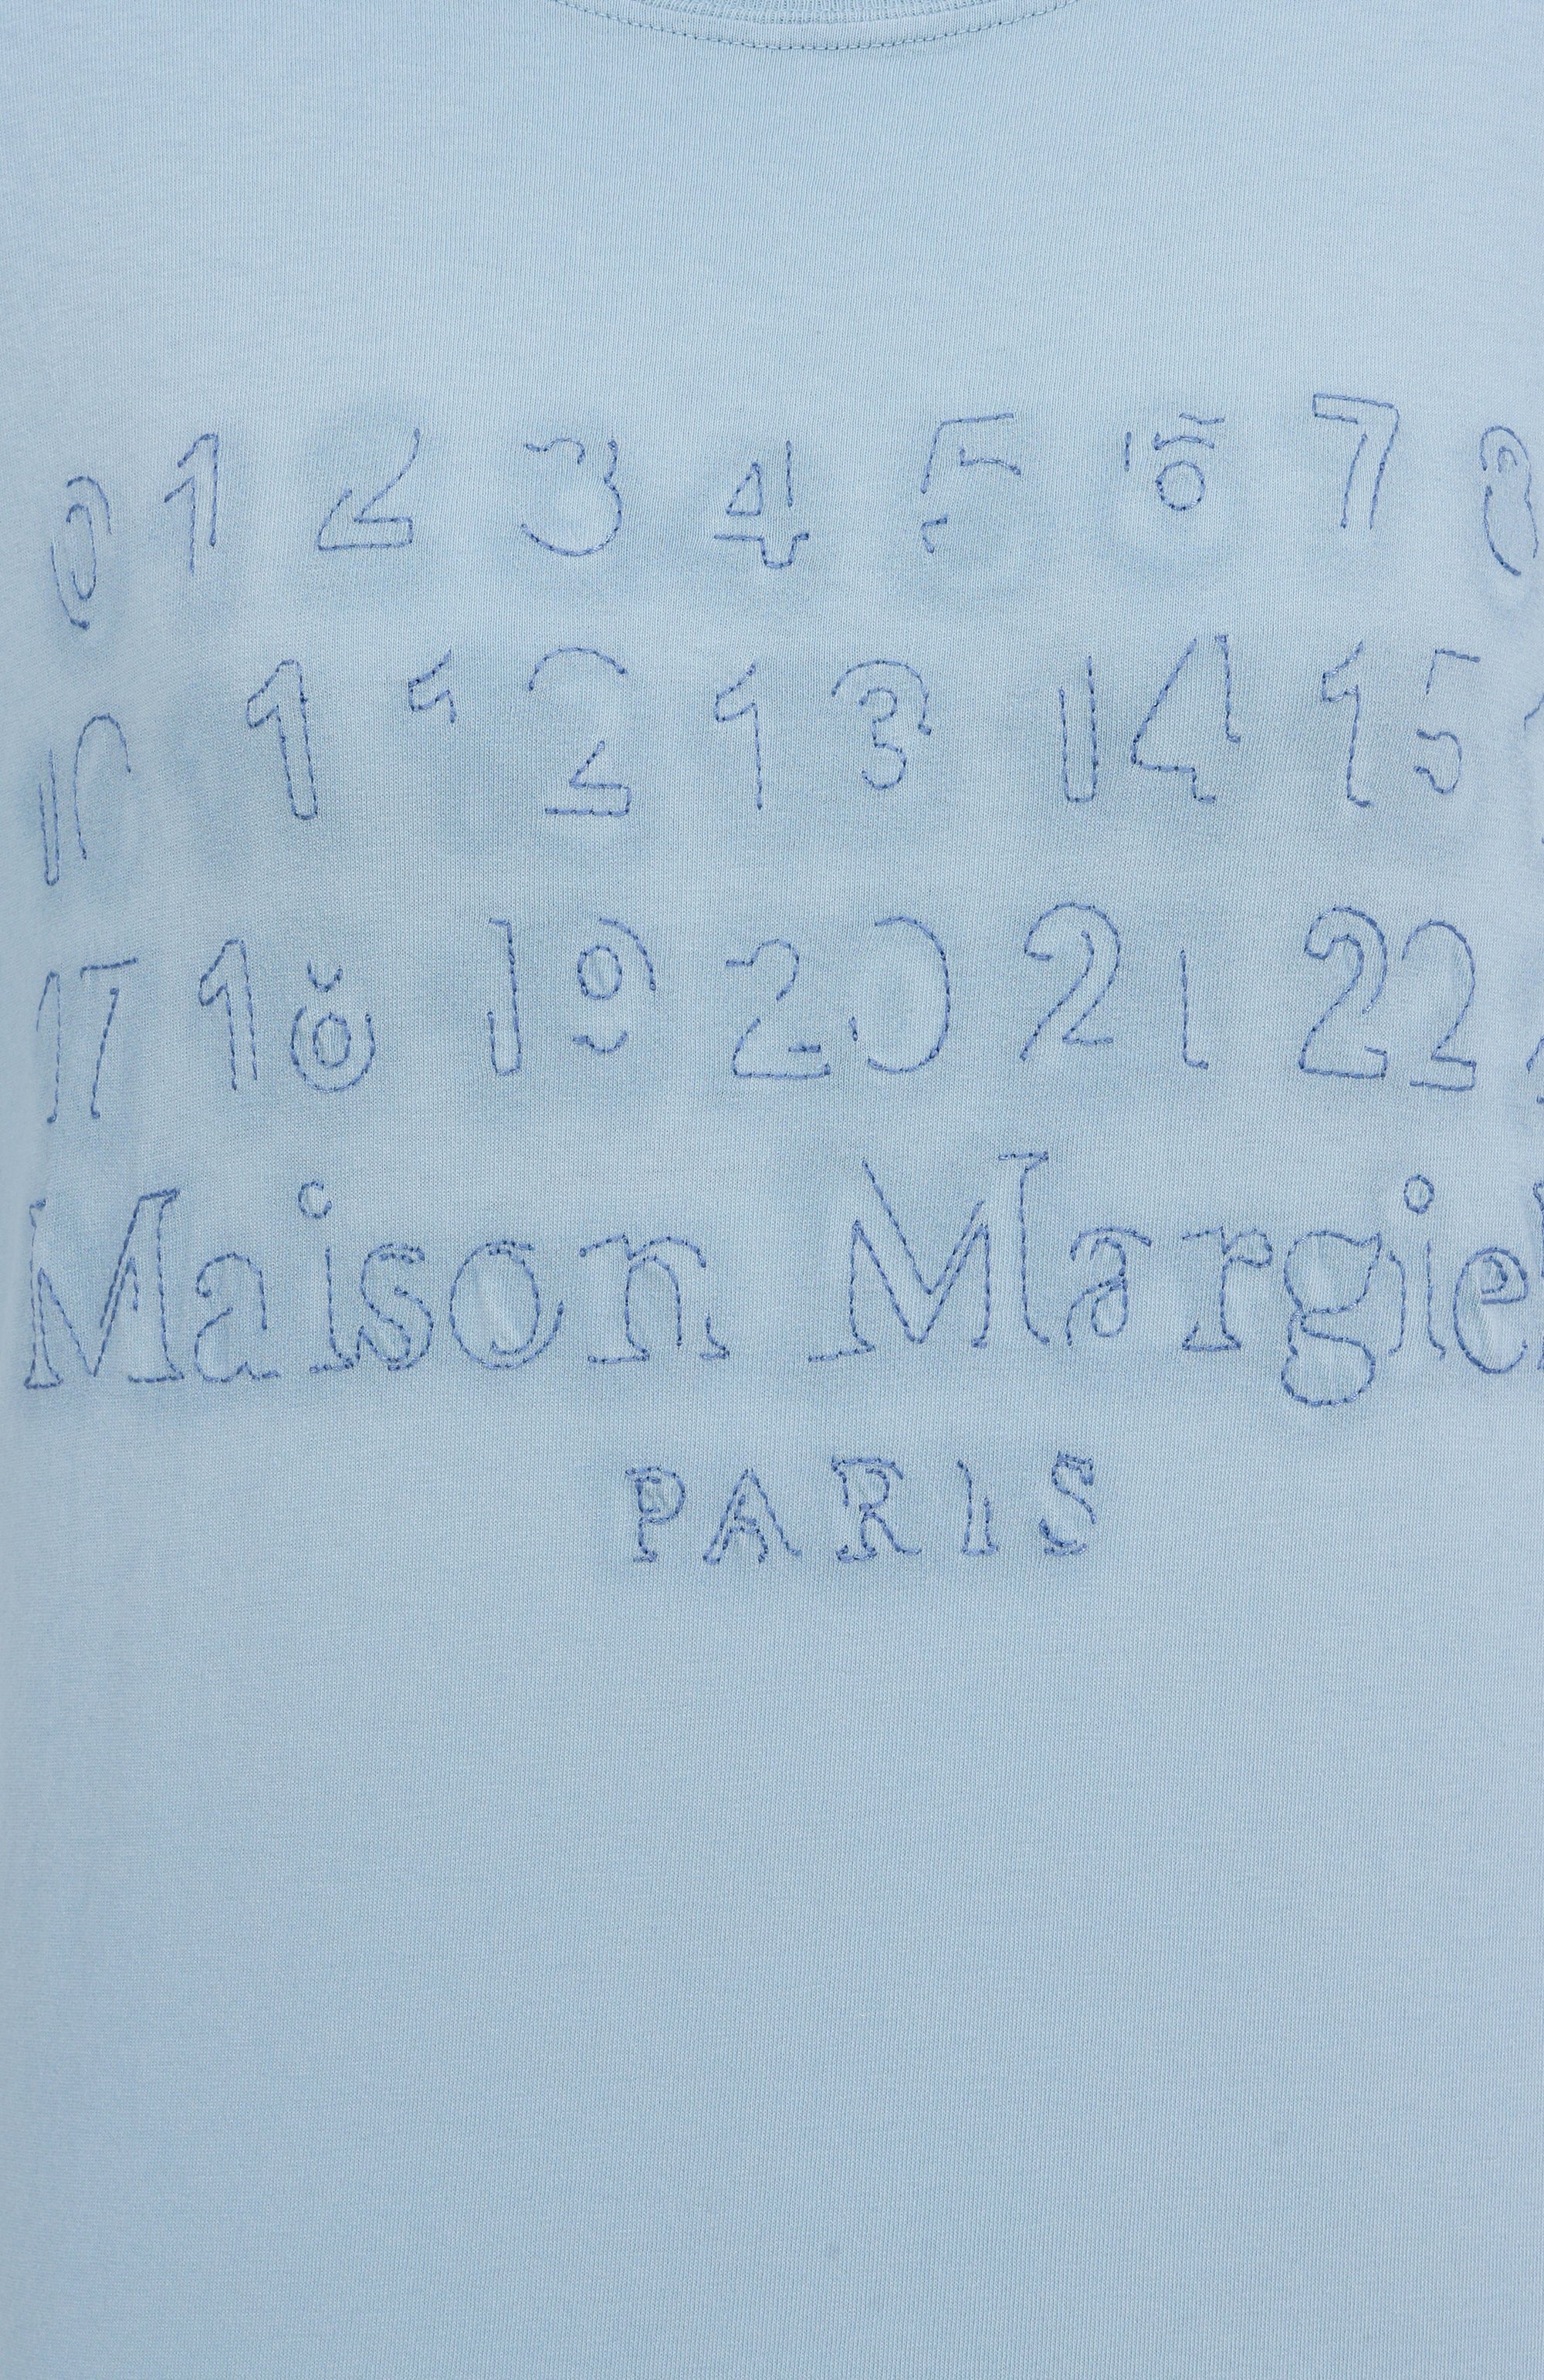 0 1 2 3 4 5 6 7 8
10 11 12 13 14 15
17 18 19 20 21 22
Maison Margiel
PARIS